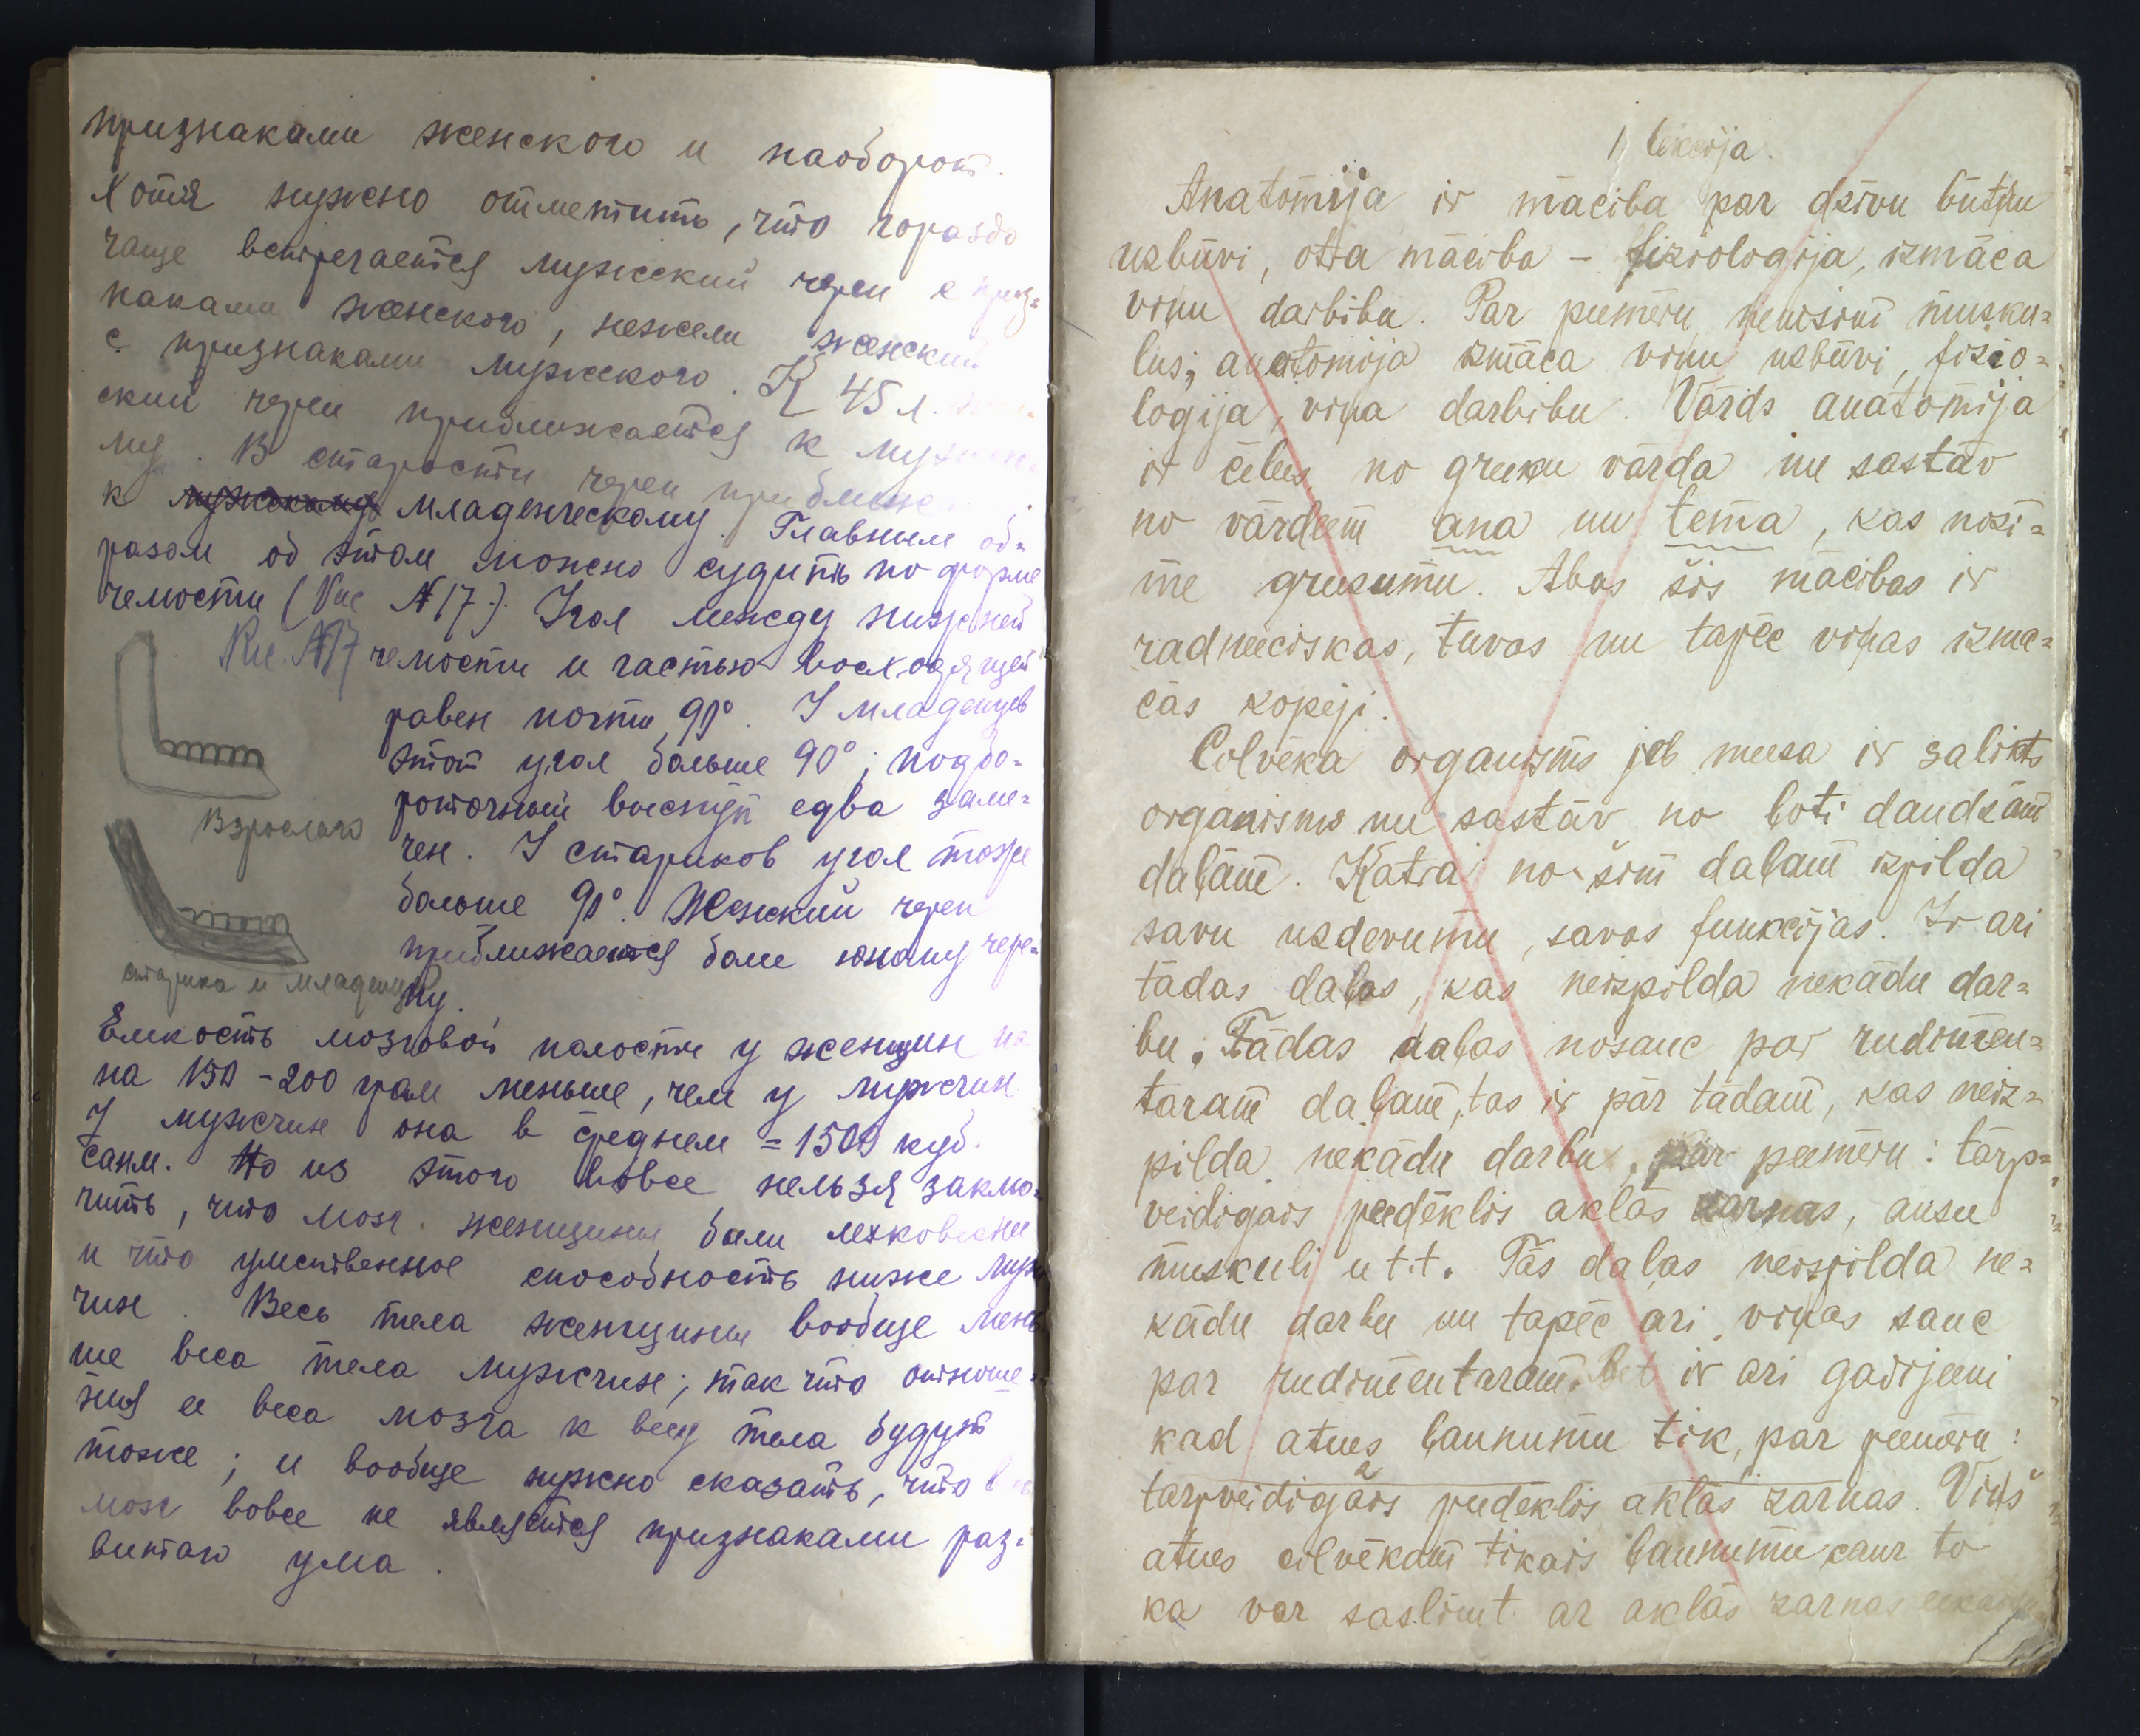 признаками женского и наоборот.
Хотя нужно отметить, что гораздо
чаще встречается мужский череп с приз=
наками женского, нежели женский
с признаками мужского. К 45 л.
ский череп приближается к
му. В старости череп приближ
к мужскому младенческому. Главным об=
разом об этом можно судить по форме
челюсти (Рис №17.). Угол между нижней
Рис. №17
челюсти и частью восходящей
равен почти 90°. У младенцев
этот угол больше 90°; подбо=
родочный выступ едва заме=
Взрослаго
чен. У стариков угол тоже
больше 90°. Женский череп
приближается боле юному чере=
старика и младенца
пу.
Емкость мозговой полости у женщин на
на 150-200 грам меньше, чем у мужчин.
У мужчин она в среднем = 1500 куб.
санм. Но из этого вовсе нельзя заклю=
чить, что мозг женщины боли легковесны
и что умственное способность ниже муж
чин. Весь тела женщины вообще мень
ше веса тела мужчин; так что отноше=
ния ее веса мозга к весу тела будут
тоже; и вообще нужно сказать, что
мозг вовсе не является признаками раз=
витаго ума.
1 lekcija.
Anatomija ir māciba par dzivu būtņu
uzbūvi, otra māciba - fizioloģija, izmāca
viņu darbibu. Par peemēru ņemsim musku=
lus; anatomija izmāca viņu uzbūvi, fizio=
logija, viņa darbibu. Vārds anatomija
ir cēlees no greeķu vārda un sastāv
no vārdeem ana un tema, kas nozī=
me greesumu. Abas šis mācibas ir
radneeciskas, tuvas un tapēc viņas izmā=
cās kopēji.
Cilvēka organisms jeb meesa ir salikts
organisms un sastāv no ļoti daudzām
daļām. Katra no šim daļam izpilda
savu uzdevumu, savas funkcijas. Ir ari
tādas daļas, kas neizpilda nekādu dar=
bu. Tādas daļas nosauc par rudimen=
taram daļam, tas ir pār tādam, kas neiz=
pilda nekādu darbu, par peemēru: tārp=
veidigais peedēklis aklās zarnas, ausu
muskuli u t.t. Tās daļas neizpilda ne=
kādu darbu un tapēc ari viņas sauc
par rudimentaram. Bet ir ari gadijeeni
kad atnes ļaunumu tik, par peemēru:
tarpveidigais peedēklis aklās zarnas. Viņš
atnes cilvēkam tikais ļaunumu caur to
ka var saslimt ar aklās zarnas